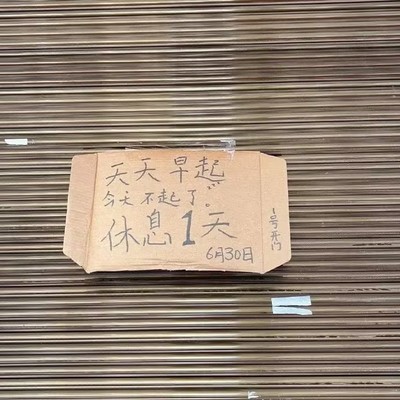 天天早起...
今天不起了。
休息1天
6月30日
1号开门